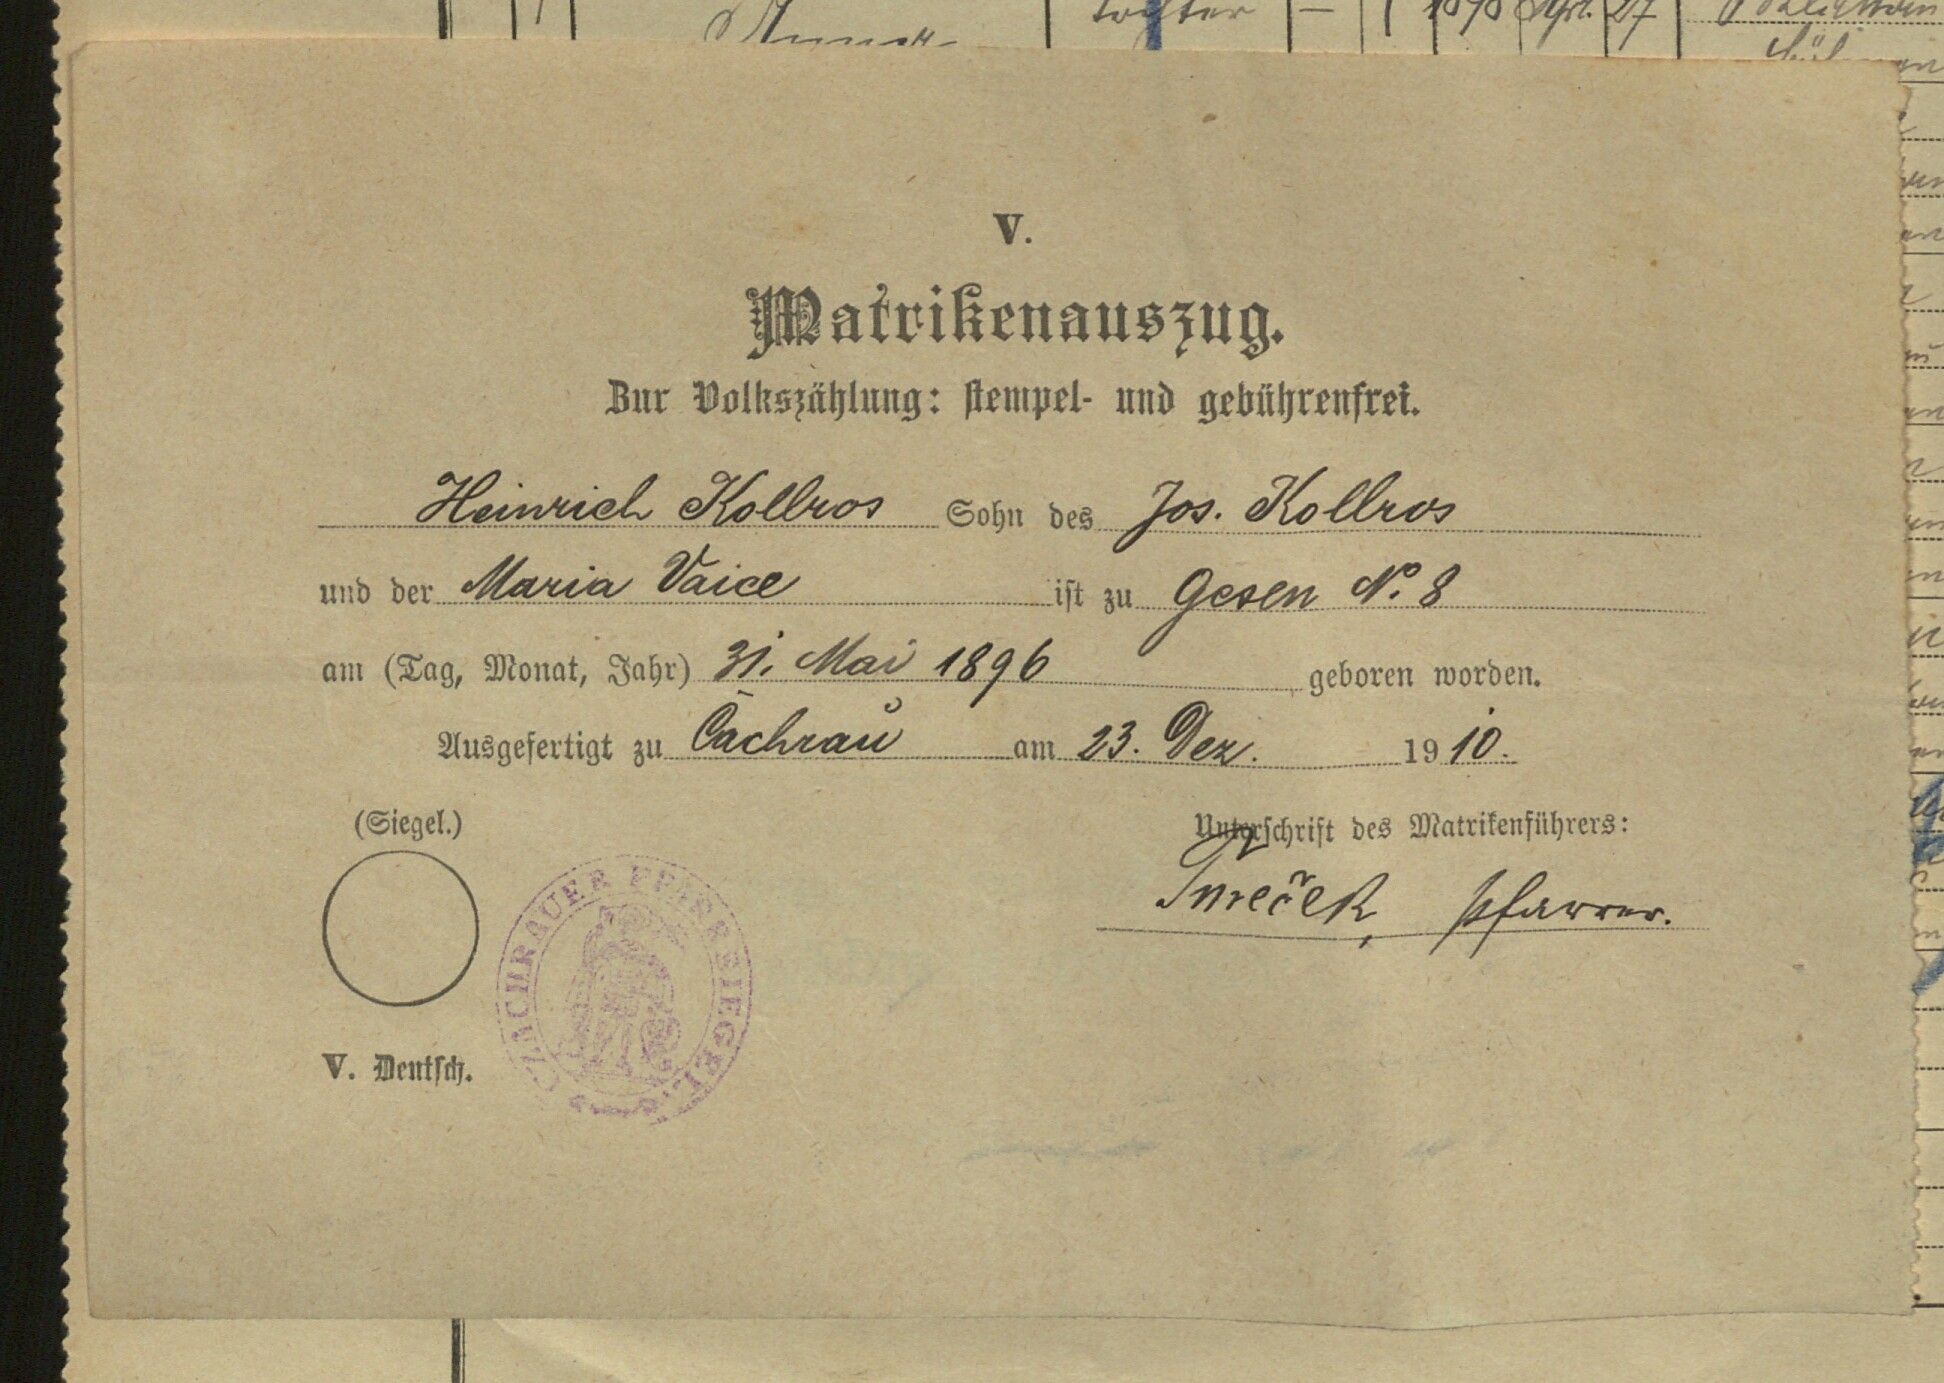 Tochter — 1 1878 27
V.
Matrikenauszug.
Zur Volkszählung: stempel- und gebührenfrei.
Heinrich Kollros Sohn des Jos. Kollros
und der Maria Vaice ist zu Gesen No. 8
am (Tag, Monat, Jahr) 31. Mai 1896 geboren worden.
Ausgefertigt zu Čachrau am 23. Dez. 1910.
(Siegel.)
Unterschrift des Matrikenführers:
Smeček, Pfarrer.
CZACHRAUER PFARRSIEGEL
V. Deutsch.